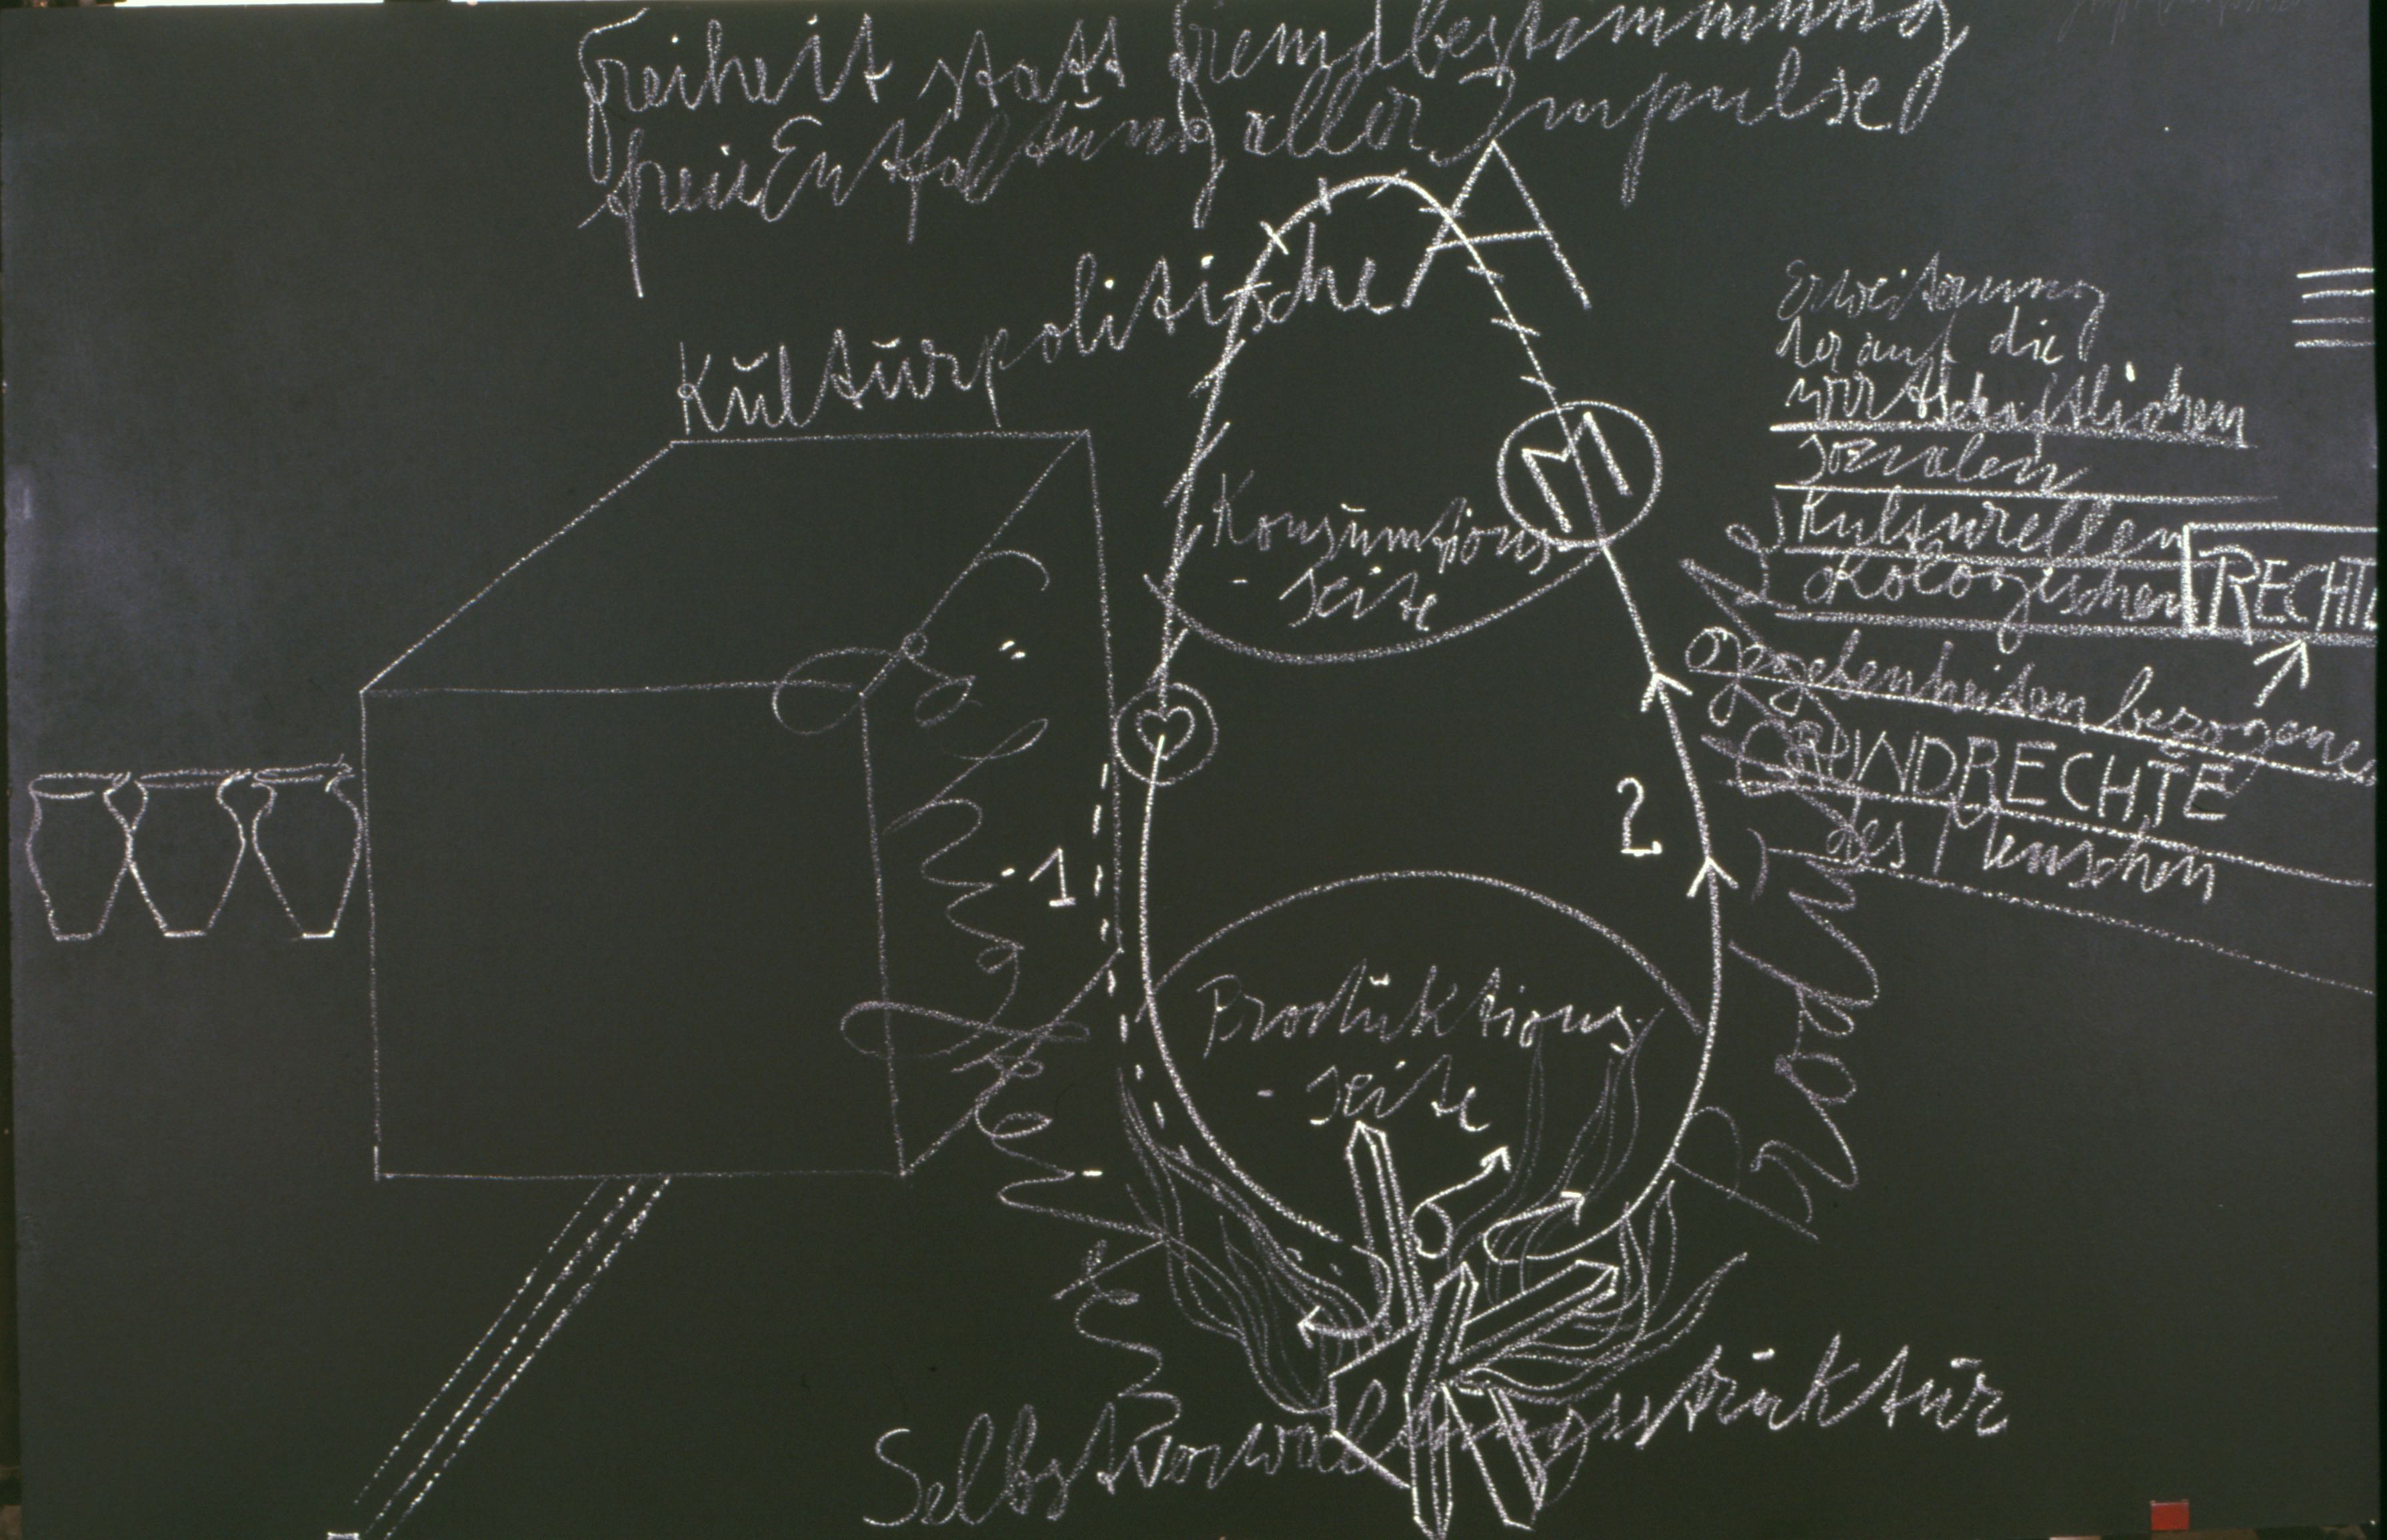 Freiheit statt Fremdbestimmung
freie Entfaltung aller Impulse
Kulturpolitische
A
Konsumtions
- seite
M
1
2
Produktions
- seite
Selbstverwaltungsstruktur
Erweiterung
der auf die
wirtschaftlichen
sozialen
kulturellen
ökologischen
RECHT
gegebenheiten bezogene
GRUNDRECHTE
des Menschen